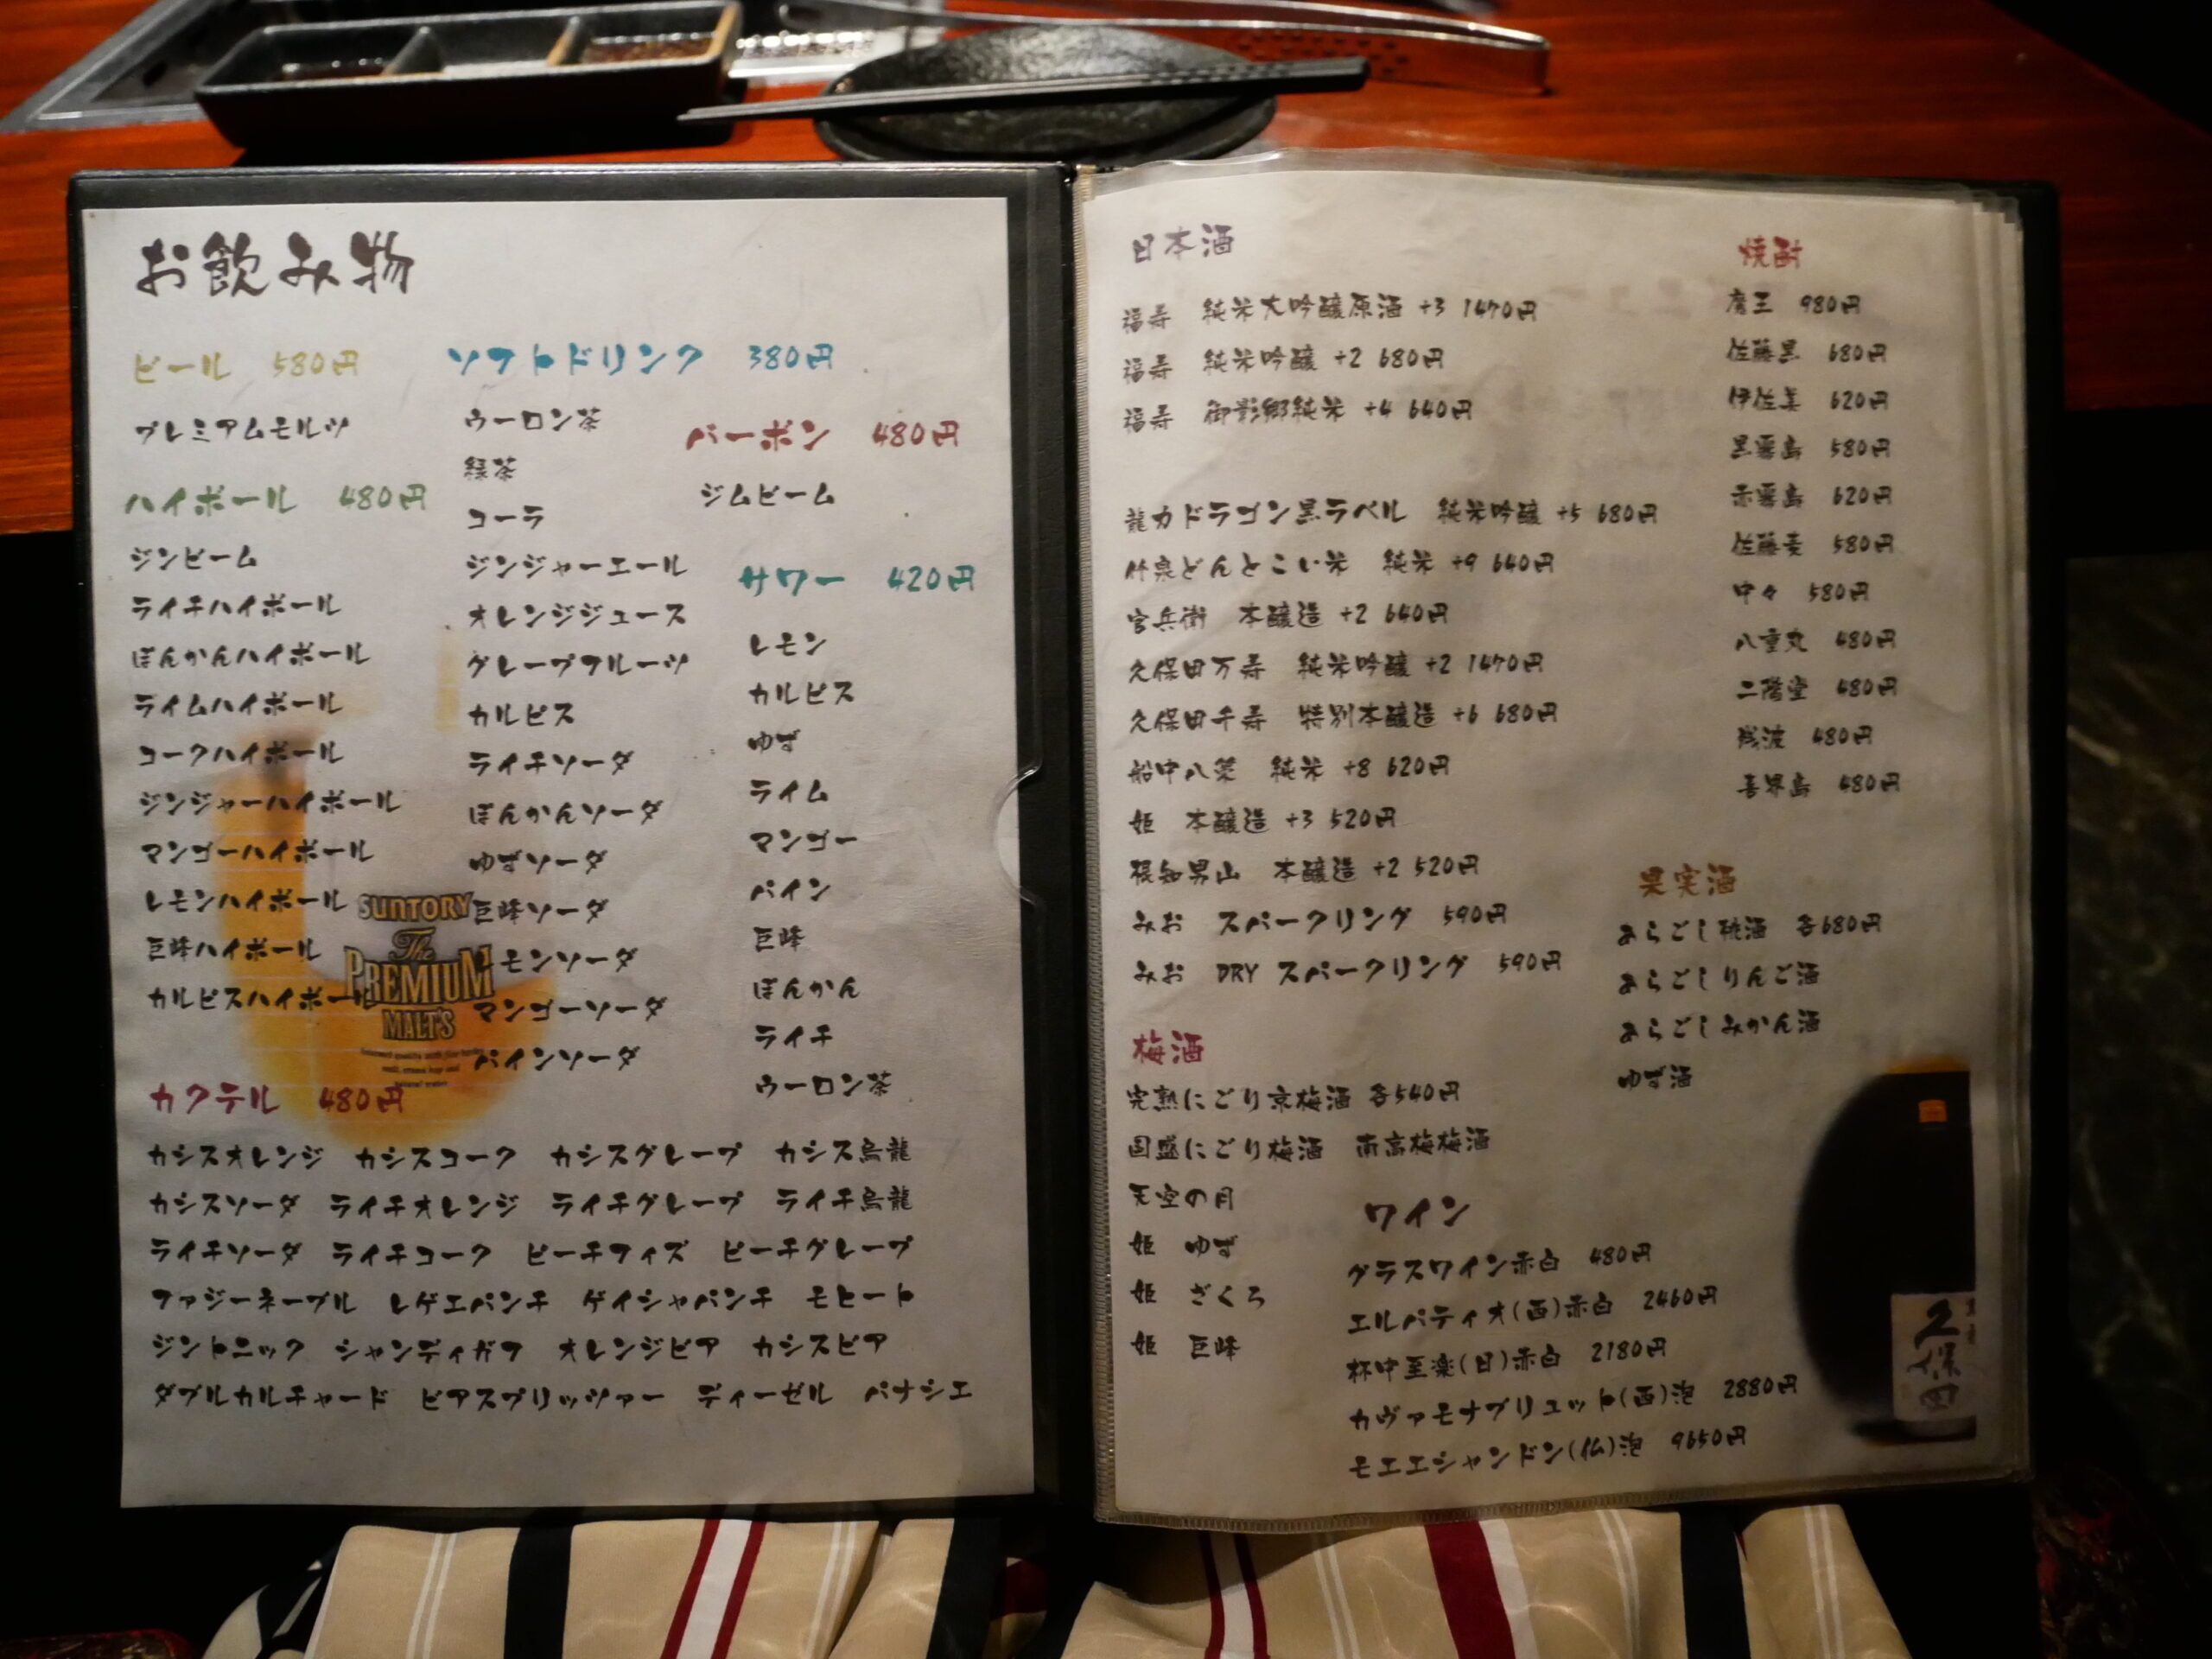 お飲み物
ビール 580円
プレミアムモルツ
ハイボール 480円
ジンビーム
ライチハイボール
ぽんかんハイボール
ライムハイボール
コークハイボール
ジンジャーハイボール
マンゴーハイボール
レモンハイボール
巨峰ハイボール
カルピスハイボール
ソフトドリンク 380円
ウーロン茶
緑茶
コーラ
ジンジャーエール
オレンジジュース
グレープフルーツ
カルピス
ライチソーダ
ぽんかんソーダ
ゆずソーダ
巨峰ソーダ
レモンソーダ
マンゴーソーダ
パインソーダ
バーボン 480円
ジムビーム
サワー 420円
レモン
カルピス
ゆず
ライム
マンゴー
パイン
巨峰
ぽんかん
ライチ
ウーロン茶
SUNTORY
The
PREMIUM
MALT'S
カクテル 480円
カシスオレンジ カシスコーク カシスグレープ カシス烏龍
カシスソーダ ライチオレンジ ライチグレープ ライチ烏龍
ライチソーダ ライチコーク ピーチフィズ ピーチグレープ
ファジーネーブル レゲエパンチ ゲイシャパンチ モヒート
ジントニック シャンディガフ オレンジビア カシスビア
ダブルカルチャード ビアスプリッツァー ディーゼル パナシェ
日本酒
福寿 純米大吟醸原酒 +3 1470円
福寿 純米吟醸 +2 680円
福寿 御影郷純米 +4 640円
龍力ドラゴン黒ラベル 純米吟醸 +5 680円
竹泉どんとこい米 純米 +9 640円
官兵衛 本醸造 +2 640円
久保田万寿 純米吟醸 +2 1470円
久保田千寿 特別本醸造 +6 680円
船中八策 純米 +8 620円
姫 本醸造 +3 520円
根知男山 本醸造 +2 520円
みお スパークリング 590円
みお DRY スパークリング 590円
焼酎
魔王 980円
佐藤黒 680円
伊佐美 620円
黒霧島 580円
赤霧島 620円
佐藤麦 580円
中々 580円
八重丸 480円
二階堂 480円
残波 480円
喜界島 480円
果実酒
あらごし桃酒 各680円
あらごしりんご酒
あらごしみかん酒
ゆず酒
梅酒
完熟にごり京梅酒 各540円
国盛にごり梅酒 南高梅梅酒
天空の月
姫 ゆず
姫 ざくろ
姫 巨峰
ワイン
グラスワイン赤白 480円
エルパティオ(西)赤白 2460円
杯中至楽(日)赤白 2180円
カヴァモナブリュット(西)泡 2880円
モエエシャンドン(仏)泡 9650円
久保田